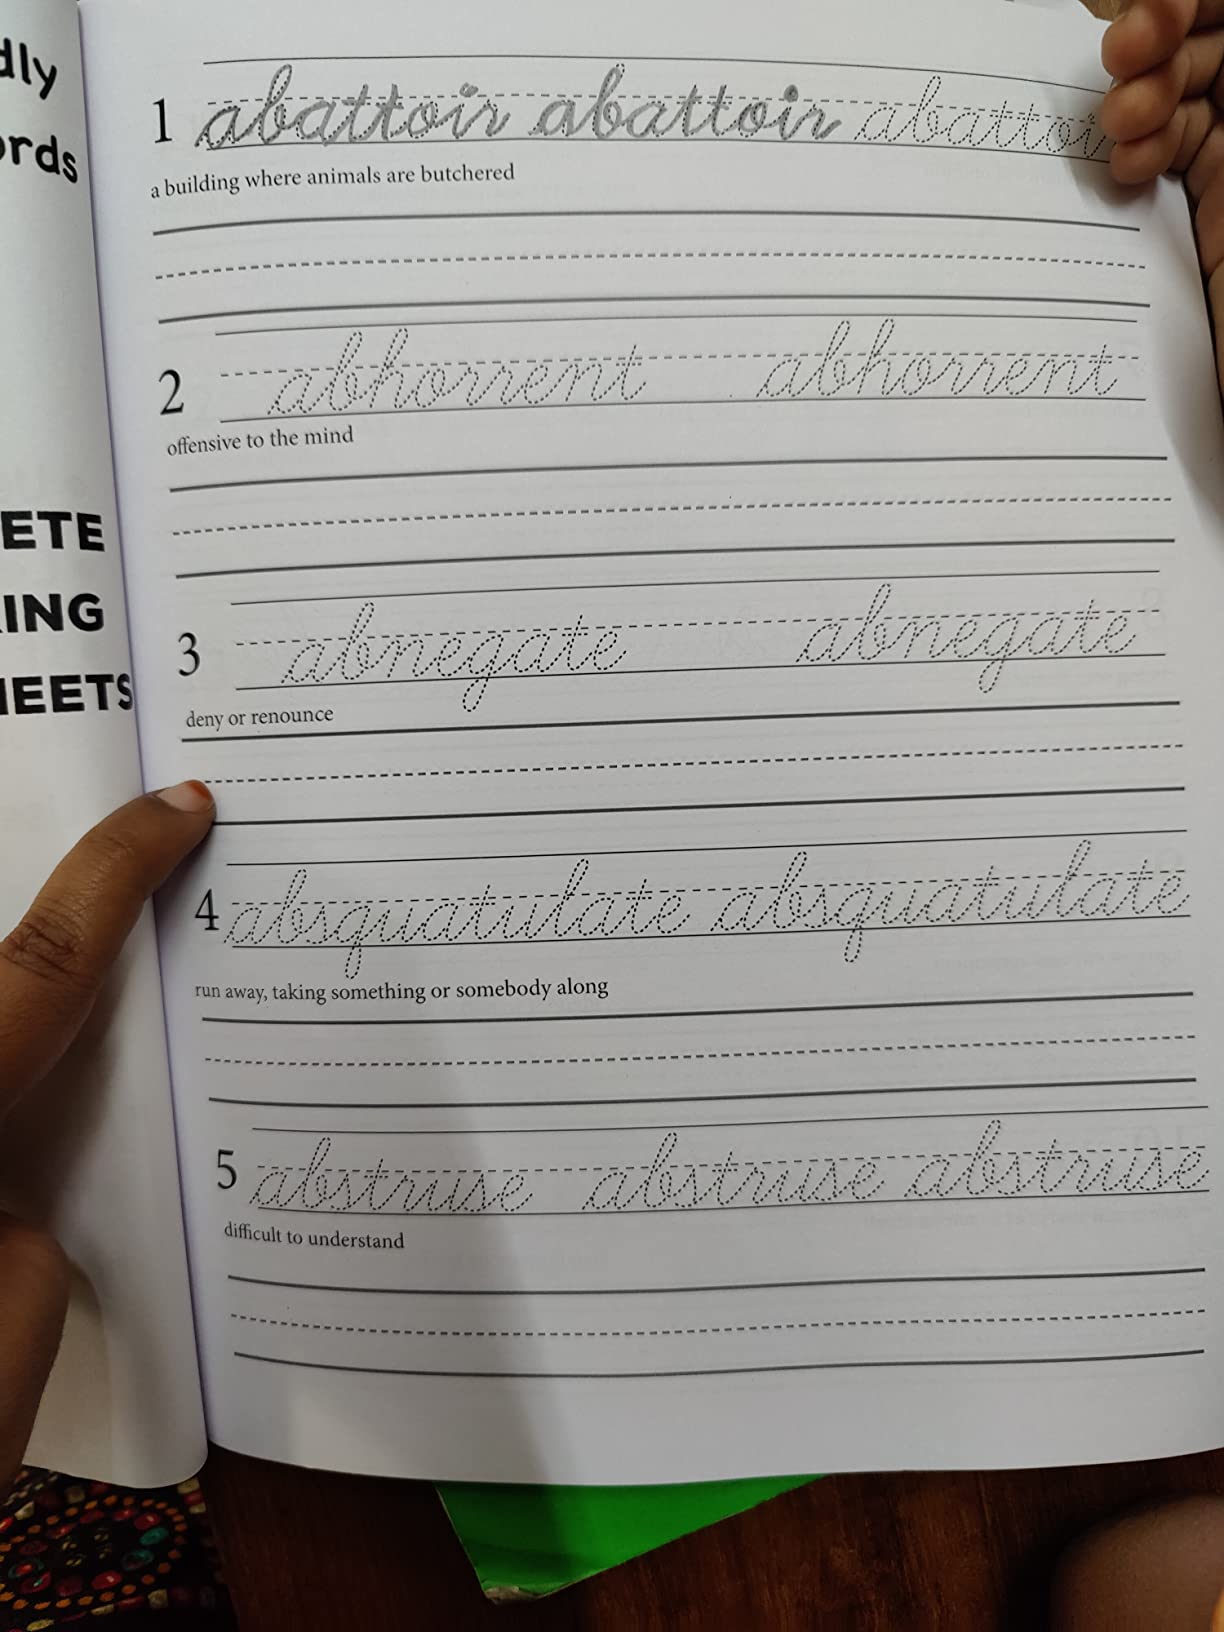 dly
ords
ETE
ING
HEETS
1 abattoir abattoir abattoir
a building where animals are butchered
2 abhorrent abhorrent
offensive to the mind
3 abnegate abnegate
deny or renounce
4 absquatulate absquatulate
run away, taking something or somebody along
5 abstruse abstruse abstruse
difficult to understand